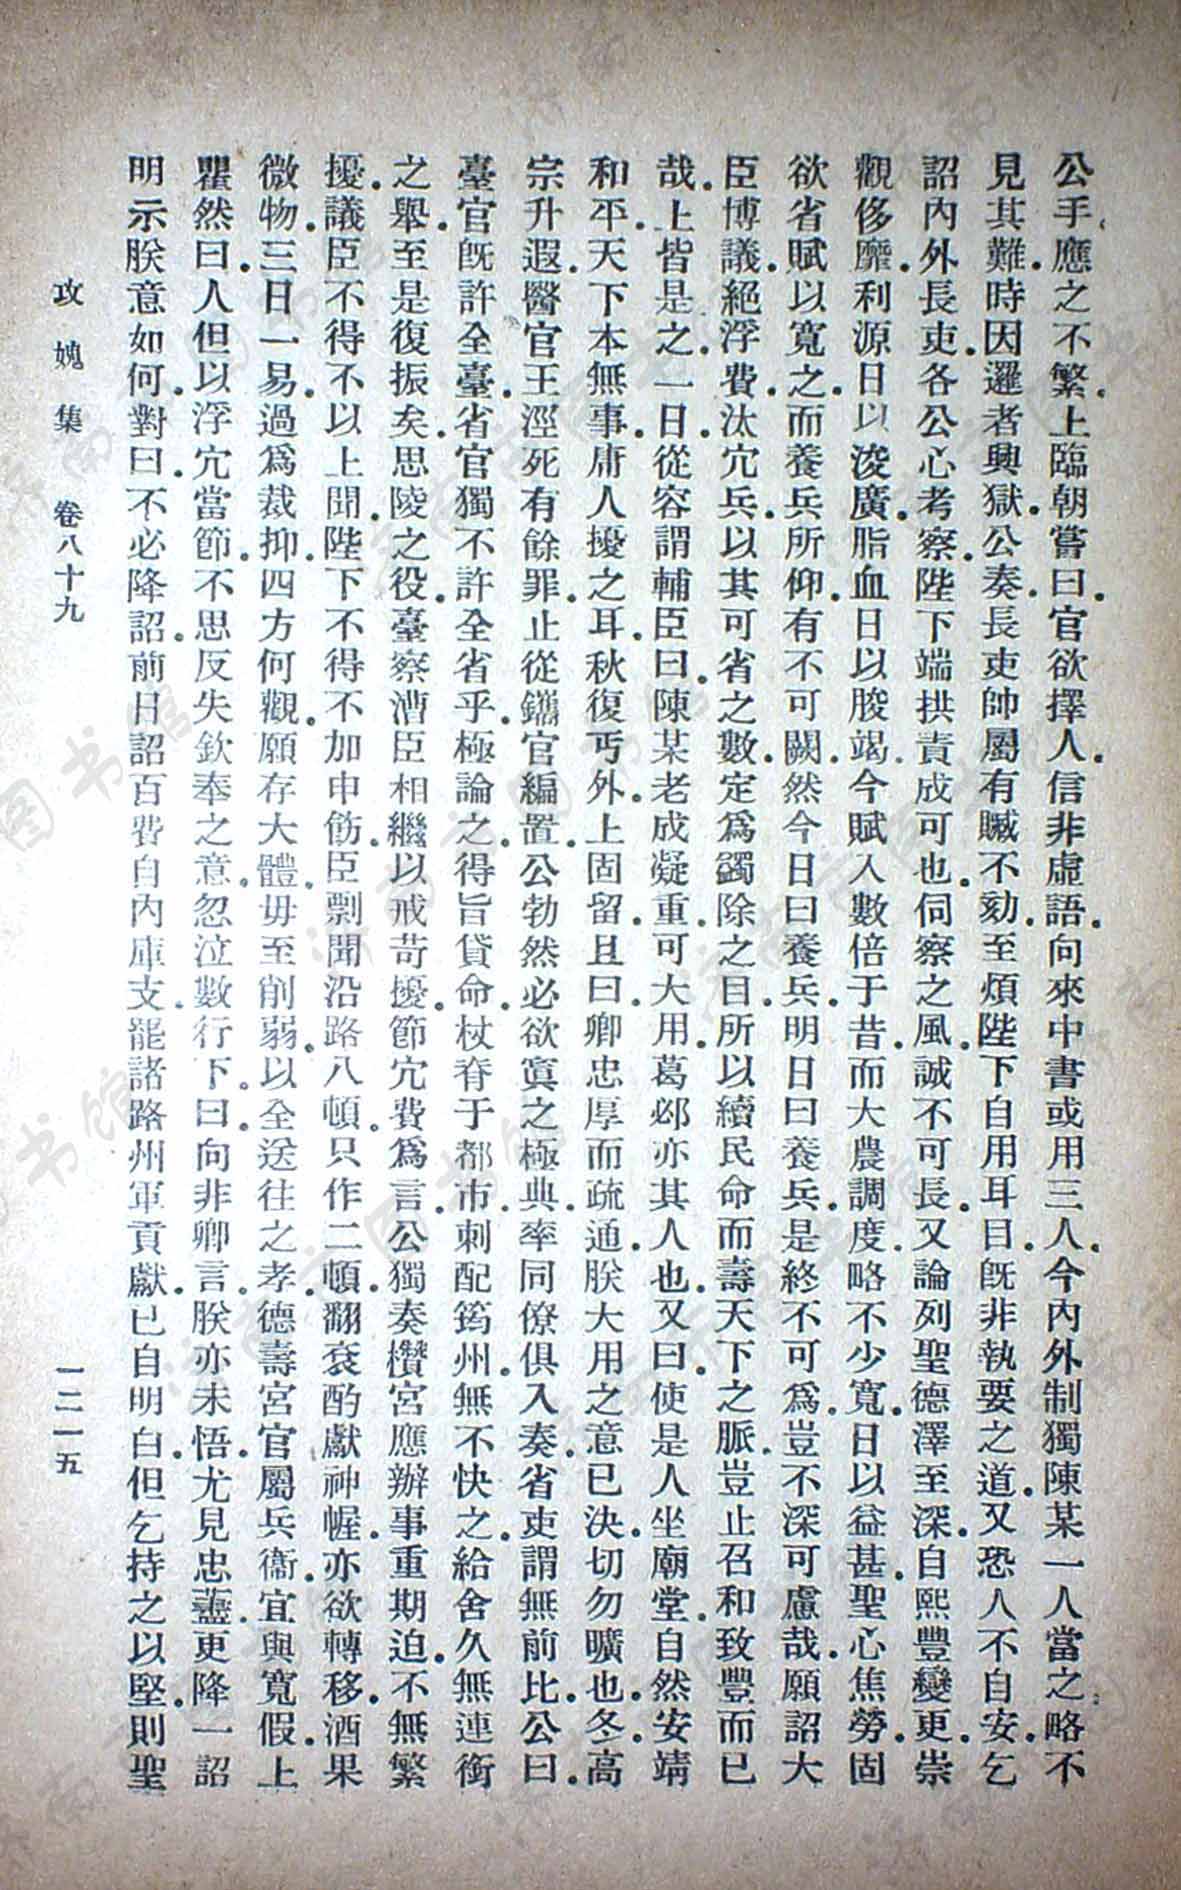 公手應之不繁上臨朝嘗曰官欲擇人信非虛語向來中書或用三人今內外制獨陳某一人當之略不
見其難時因邏者興獄公奏長吏帥屬有贓不劾至煩陛下自用耳目旣非執要之道又恐人不自安乞
詔內外長吏各公心考察陛下端拱責成可也伺察之風誠不可長又論列聖德澤至深自熙豐變更崇
觀侈靡利源日以浚廣脂血日以朘竭今賦入數倍于昔而大農調度略不少寬日以益甚聖心焦勞固
欲省賦以寬之而養兵所仰有不可闕然今日曰養兵明日曰養兵是終不可爲豈不深可慮哉願詔大
臣博議絕浮費汰宂兵以其可省之數定爲蠲除之目所以續民命而壽天下之脈豈止召和致豐而已
哉上皆是之一日從容謂輔臣曰陳某老成凝重可大用葛邲亦其人也又曰使是人坐廟堂自然安靖
和平天下本無事庸人擾之耳秋復丐外上固留且曰卿忠厚而疏通朕大用之意已決切勿曠也冬高
宗升遐醫官王涇死有餘罪止從鐫官編置公勃然必欲寘之極典率同僚俱入奏省吏謂無前比公曰
臺官旣許全臺省官獨不許全省乎極論之得旨貸命杖脊于都市刺配筠州無不快之給舍久無連銜
之舉至是復振矣思陵之役臺察漕臣相繼以戒苛擾節宂費爲言公獨奏欑宮應辦事重期迫不無繁
擾議臣不得不以上聞陛下不得不加申飭臣剽聞沿路八頓只作二頓翻袞酌獻神幄亦欲轉移酒果
微物三日一易過爲裁抑四方何觀願存大體毋至削弱以全送往之孝德壽宮官屬兵衞宜與寬假上
瞿然曰人但以浮宂當節不思反失欽奉之意忽泣數行下曰向非卿言朕亦未悟尤見忠藎更降一詔
明示朕意如何對曰不必降詔前日詔百費自內庫支罷諸路州軍貢獻已自明白但乞持之以堅則聖
攻媿集 卷八十九 一二一五